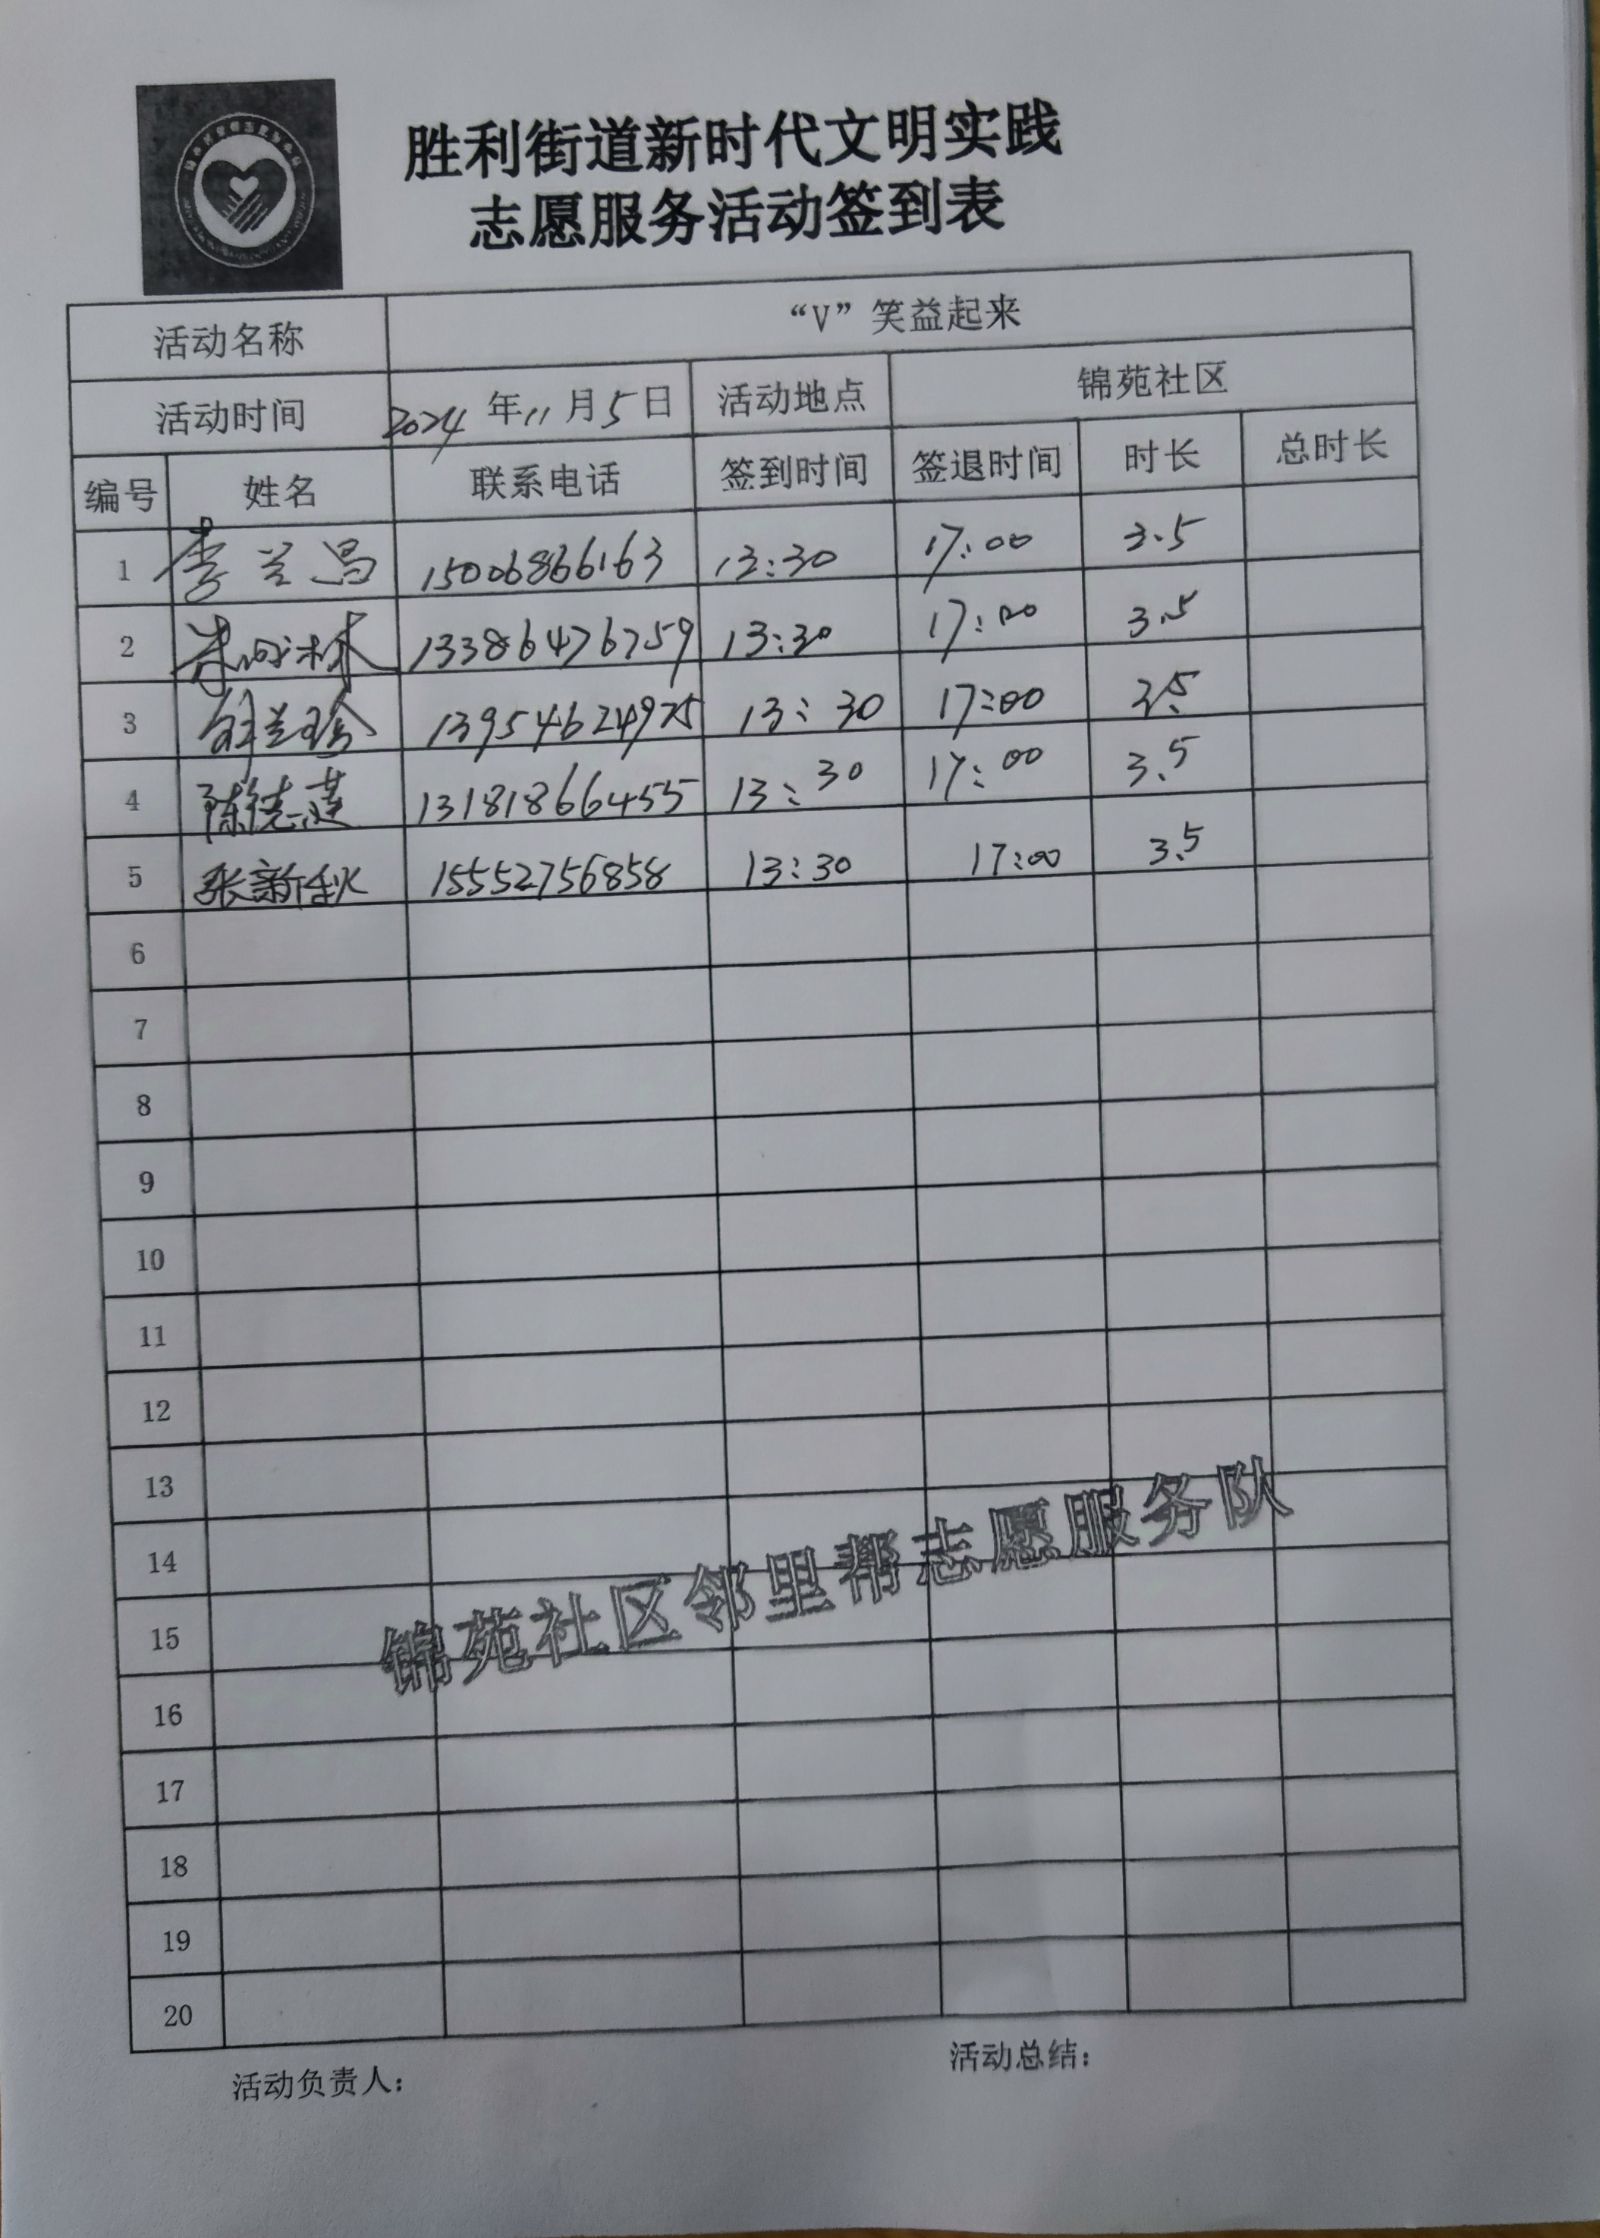 胜利街道新时代文明实践
志愿服务活动签到表
活动名称 “V”笑益起来
活动时间 2024年11月5日 活动地点 锦苑社区
编号 姓名 联系电话 签到时间 签退时间 时长 总时长
1 李兰昌 15006866163 13:30 17:00 3.5
2 13386476759 13:30 17:00 3.5
3 兰珍 13954624975 13:30 17:00 3.5
4 陈德莲 13181866455 13:30 17:00 3.5
5 张新秋 15552756858 13:30 17:00 3.5
6
7
8
9
10
11
12
13
14
锦苑社区邻里帮志愿服务队
15
16
17
18
19
20
活动负责人： 活动总结：